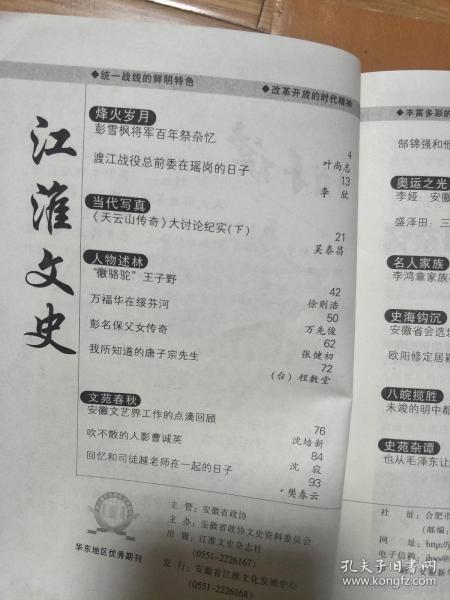 ◆统一战线的鲜明特色
◆改革开放的时代精神
江淮文史
烽火岁月
彭雪枫将军百年祭杂忆
4
叶尚志
渡江战役总前委在瑶岗的日子
13
李 欣
当代写真
《天云山传奇》大讨论纪实(下)
21
吴泰昌
人物述林
“徽骆驼”王子野
42
徐则浩
万福华在绥芬河
50
万先俊
彭名保父女传奇
62
张健初
我所知道的唐子宗先生
72
(台)程敷堂
文苑春秋
安徽文艺界工作的点滴回顾
76
沈培新
吹不散的人影曹诚英
84
沈 寂
回忆和司徒越老师在一起的日子
93
樊春云
华东地区优秀期刊
主 管: 安徽省政协
主 办: 安徽省政协文史资料委员会
出 版: 江淮文史杂志社
(0551-2226167)
发 行: 安徽省江淮文化发展中心
(0551-2226168)
◆丰富多彩的
郜锦强和他
奥运之光
李娅: 安徽
盛泽田: 三
名人家族
李鸿章家族
史海钩沉
安徽省会选址
欧阳修定居颍
八皖揽胜
未竣的明中都
史苑杂谭
也从毛泽东让
社 址: 合肥市
(邮编:
网 址: http://
电子信箱:
孔夫子旧书网